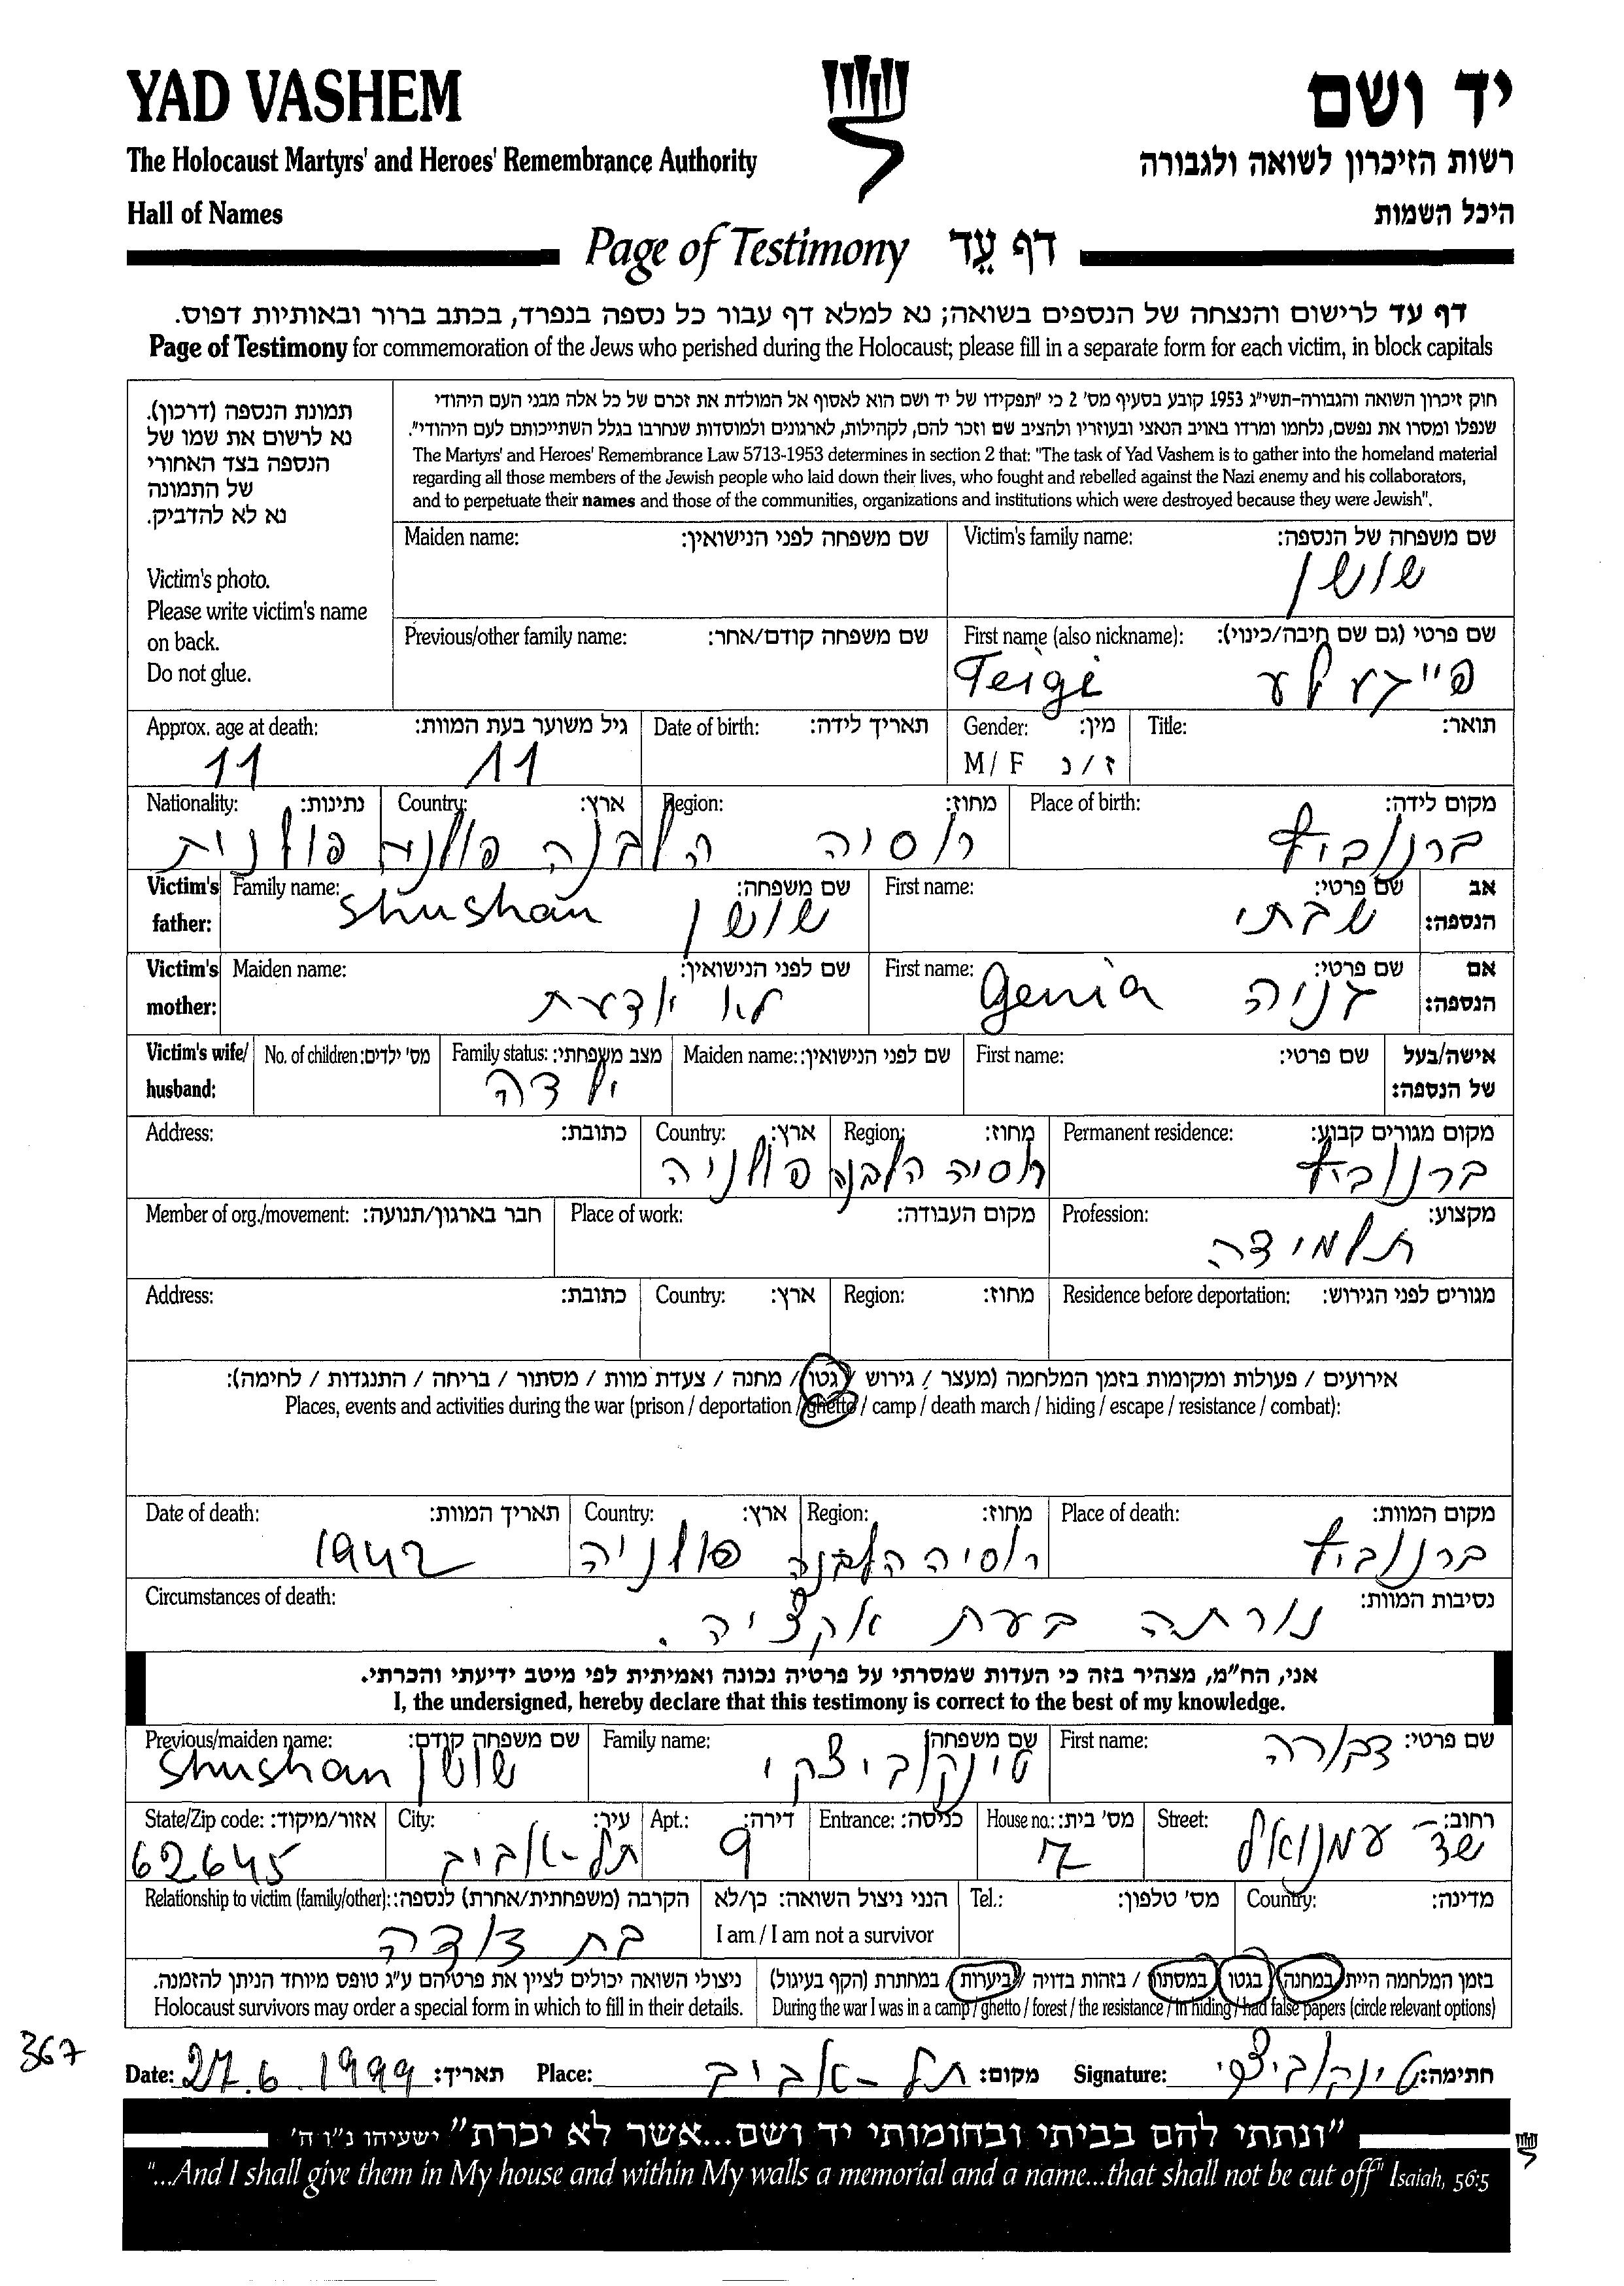 YAD VASHEM
יד ושם
The Holocaust Martyrs' and Heroes' Remembrance Authority
רשות הזיכרון לשואה ולגבורה
Hall of Names
היכל השמות
Page of Testimony דף עֵד
דף עד לרישום והנצחה של הנספים בשואה; נא למלא דף עבור כל נספה בנפרד, בכתב ברור ובאותיות דפוס.
Page of Testimony for commemoration of the Jews who perished during the Holocaust; please fill in a separate form for each victim, in block capitals
תמונת הנספה (דרכון).
נא לרשום את שמו של
הנספה בצד האחורי
של התמונה
נא לא להדביק.
Victim's photo.
Please write victim's name
on back.
Do not glue.
חוק זיכרון השואה והגבורה-תשי"ג 1953 קובע בסעיף מס' 2 כי "תפקידו של יד ושם הוא לאסוף אל המולדת את זכרם של כל אלה מבני העם היהודי
שנפלו ומסרו את נפשם, נלחמו ומרדו באויב הנאצי ובעוזריו ולהציב שם וזכר להם, לקהילות, לארגונים ולמוסדות שנחרבו בגלל השתייכותם לעם היהודי".
The Martyrs' and Heroes' Remembrance Law 5713-1953 determines in section 2 that: "The task of Yad Vashem is to gather into the homeland material
regarding all those members of the Jewish people who laid down their lives, who fought and rebelled against the Nazi enemy and his collaborators,
and to perpetuate their names and those of the communities, organizations and institutions which were destroyed because they were Jewish".
Maiden name: שם משפחה לפני הנישואין: Victim's family name: שם משפחה של הנספה:
שושן
Previous/other family name: שם משפחה קודם/אחר: First name (also nickname): שם פרטי (גם שם חיבה/כינוי):
Feige פייגעלע
Approx. age at death: גיל משוער בעת המוות: Date of birth: תאריך לידה: Gender: מין: Title: תואר:
11 11 M / F ז / נ
Nationality: נתינות: Country: ארץ: Region: מחוז: Place of birth: מקום לידה:
פולנית פולניה רוסיה הלבנה ברנוביץ
Victim's father: Family name: שם משפחה: First name: שם פרטי: אב הנספה:
Shushan שושן שבתי
Victim's mother: Maiden name: שם לפני הנישואין: First name: שם פרטי: אם הנספה:
לא יודעת Genia גניה
Victim's wife/ husband: No. of children: מס' ילדים: Family status: מצב משפחתי: Maiden name: שם לפני הנישואין: First name: שם פרטי: אישה/בעל של הנספה:
ילדה
Address: כתובת: Country: ארץ: Region: מחוז: Permanent residence: מקום מגורים קבוע:
פולניה רוסיה הלבנה ברנוביץ
Member of org./movement: חבר בארגון/תנועה: Place of work: מקום העבודה: Profession: מקצוע:
תלמידה
Address: כתובת: Country: ארץ: Region: מחוז: Residence before deportation: מגורים לפני הגירוש:
אירועים / פעולות ומקומות בזמן המלחמה (מעצר / גירוש / גטו / מחנה / צעדת מוות / מסתור / בריחה / התנגדות / לחימה):
Places, events and activities during the war (prison / deportation / ghetto / camp / death march / hiding / escape / resistance / combat):
Date of death: תאריך המוות: Country: ארץ: Region: מחוז: Place of death: מקום המוות:
1942 פולניה רוסיה הלבנה ברנוביץ
Circumstances of death: נסיבות המוות:
נורתה בעת אקציה.
אני, הח"מ, מצהיר בזה כי העדות שמסרתי על פרטיה נכונה ואמיתית לפי מיטב ידיעתי והכרתי.
I, the undersigned, hereby declare that this testimony is correct to the best of my knowledge.
Previous/maiden name: שם משפחה קודם: Family name: שם משפחה: First name: שם פרטי:
Shushan שושן טינקוביצקי דבורה
State/Zip code: אזור/מיקוד: City: עיר: Apt.: דירה: Entrance: כניסה: House no.: מס' בית: Street: רחוב:
62645 תל-אביב 9 7 שד עמנואל
Relationship to victim (family/other): הקרבה (משפחתית/אחרת) לנספה: הנני ניצול השואה: כן/לא Tel.: מס' טלפון: Country: מדינה:
בת דודה I am / I am not a survivor
ניצולי השואה יכולים לציין את פרטיהם ע"ג טופס מיוחד הניתן להזמנה. בזמן המלחמה הייתי במחנה / בגטו / במסתור / בזהות בדויה / ביערות / במחתרת (הקף בעיגול)
Holocaust survivors may order a special form in which to fill in their details. During the war I was in a camp / ghetto / forest / the resistance / in hiding / had false papers (circle relevant options)
367
Date: 27.6.1999 תאריך: Place: תל-אביב מקום: Signature: חתימה:
"ונתתי להם בביתי ובחומותי יד ושם...אשר לא יכרת" ישעיהו נ"ו ה'
"...And I shall give them in My house and within My walls a memorial and a name...that shall not be cut off" Isaiah, 56:5